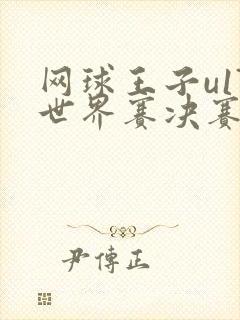 网球王子u17
世界赛决赛
尹傅正